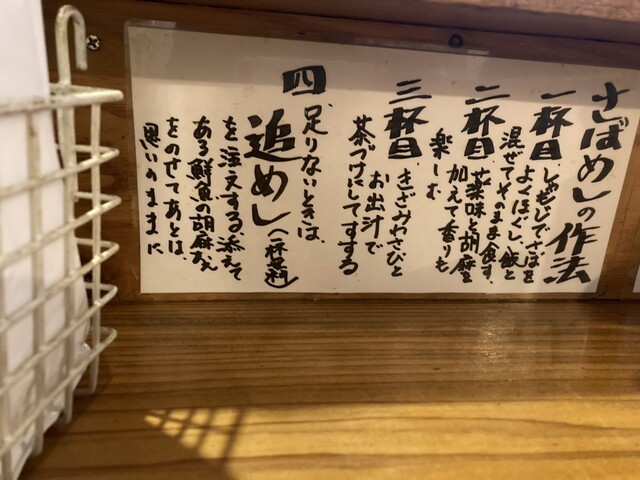 さばめしの作法
一杯目
しゃもじでさばを
よくほぐし、飯と
混ぜてそのまま食す。
二杯目
薬味と胡麻を
加えて香りを
楽しむ
三杯目
きざみわさびと
お出汁で
茶づけにしてすする
四
足りないときは、
追めし(一杯無料)
を注文する。添えて
ある鮮魚の胡麻和え
をのせてあとは、
思いのままに